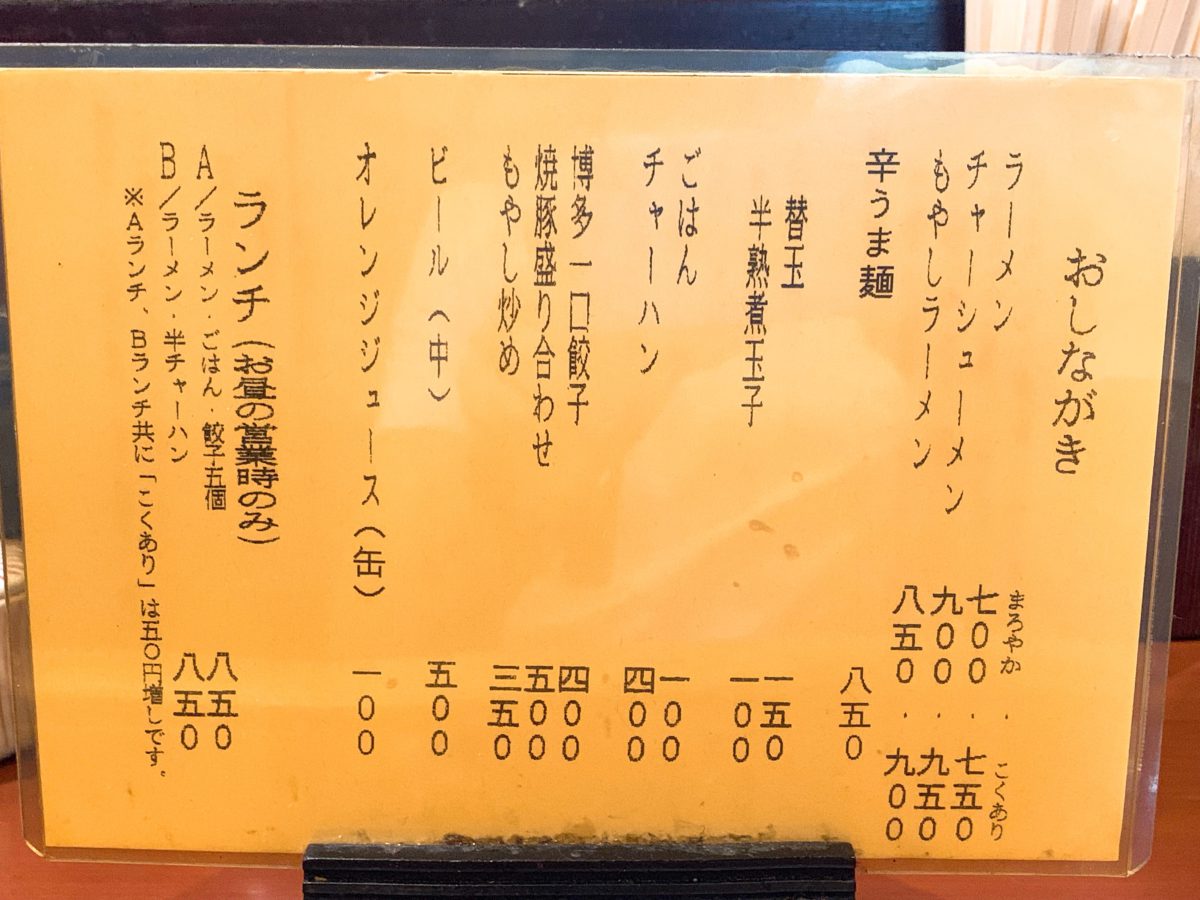 おしながき
まろやか・こくあり
ラーメン 七〇〇・七五〇
チャーシューメン 九〇〇・九五〇
もやしラーメン 八五〇・九〇〇
辛うま麺 八五〇
替玉 一五〇
半熟煮玉子 一〇〇
ごはん 一〇〇
チャーハン 四〇〇
博多一口餃子 四〇〇
焼豚盛り合わせ 五〇〇
もやし炒め 三五〇
ビール(中) 五〇〇
オレンジジュース(缶) 一〇〇
ランチ(お昼の営業時のみ)
A/ラーメン・ごはん・餃子五個 八五〇
B/ラーメン・半チャーハン 八五〇
※Aランチ、Bランチ共に「こくあり」は五〇円増しです。